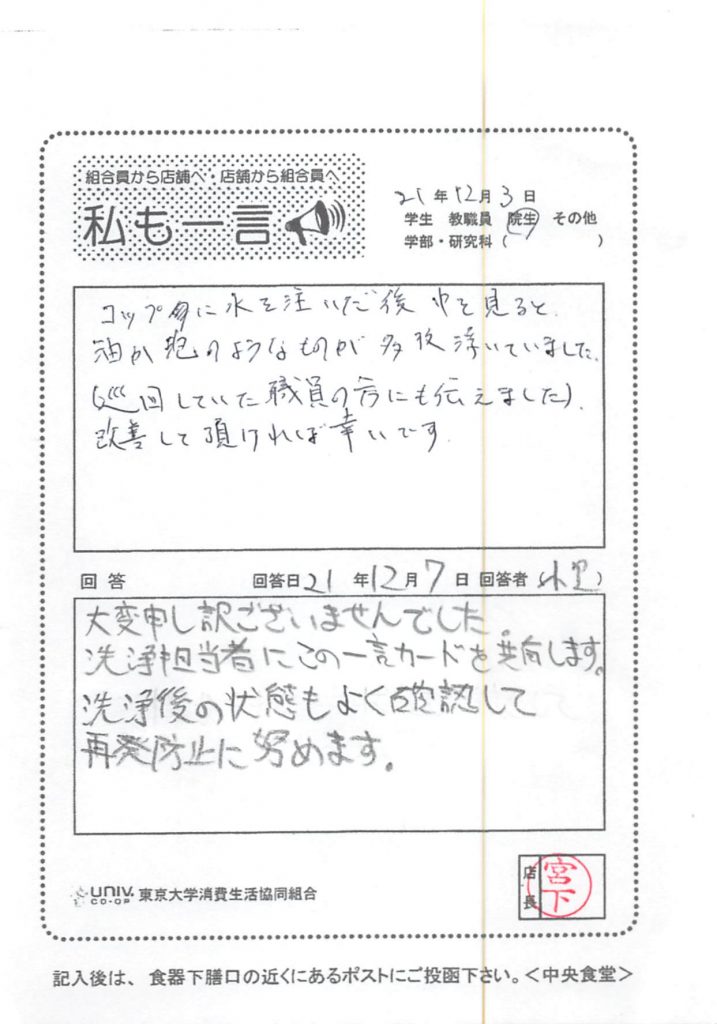 組合員から店舗へ・店舗から組合員へ
私も一言
21年12月3日
学生 教職員 院生 その他
学部・研究科( )
コップに水を注いだ後 中を見ると、
油か泡のようなものが多数浮いていました。
(巡回していた職員の方にも伝えました)。
改善して頂ければ幸いです。
回答 回答日21年12月7日 回答者( )
大変申し訳ございませんでした。
洗浄担当者にこの一言カードを共向します。
洗浄後の状態もよく確認して
再発防止に努めます。
UNIV. CO-OP 東京大学消費生活協同組合
店長 宮下
記入後は、食器下膳口の近くにあるポストにご投函下さい。<中央食堂>